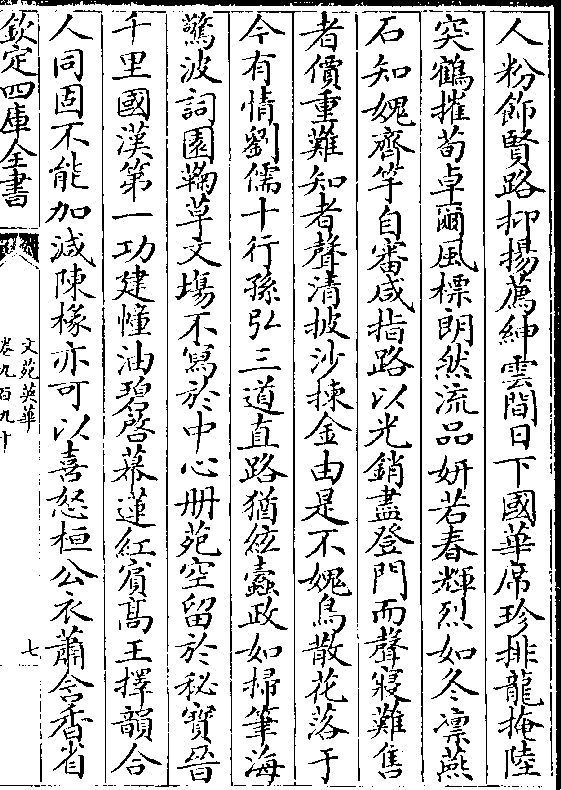 人粉飾賢路抑揚薦紳雲間日下國華席珍排龍掩陸
突鶴摧荀卓爾風標朗然流品妍若春輝烈如冬凛燕
石知媿齊竽自審咸指路以光銷盡登門而聲寢難售
者價重難知者聲清披沙揀金由是不媿鳥散花落于
今有情劉儒十行孫弘三道直路猶絃蠧政如掃筆海
驚波詞園鞠草文塲不寫於中心册苑空留於秘寶晉
千里國漢第一功建幢油碧啓幕蓮紅賓髙王擇韻合
人同固不能加減陳椽亦可以喜怒桓公衣蕭含香省
欽定四庫全書
文苑英華
卷九百九十
七